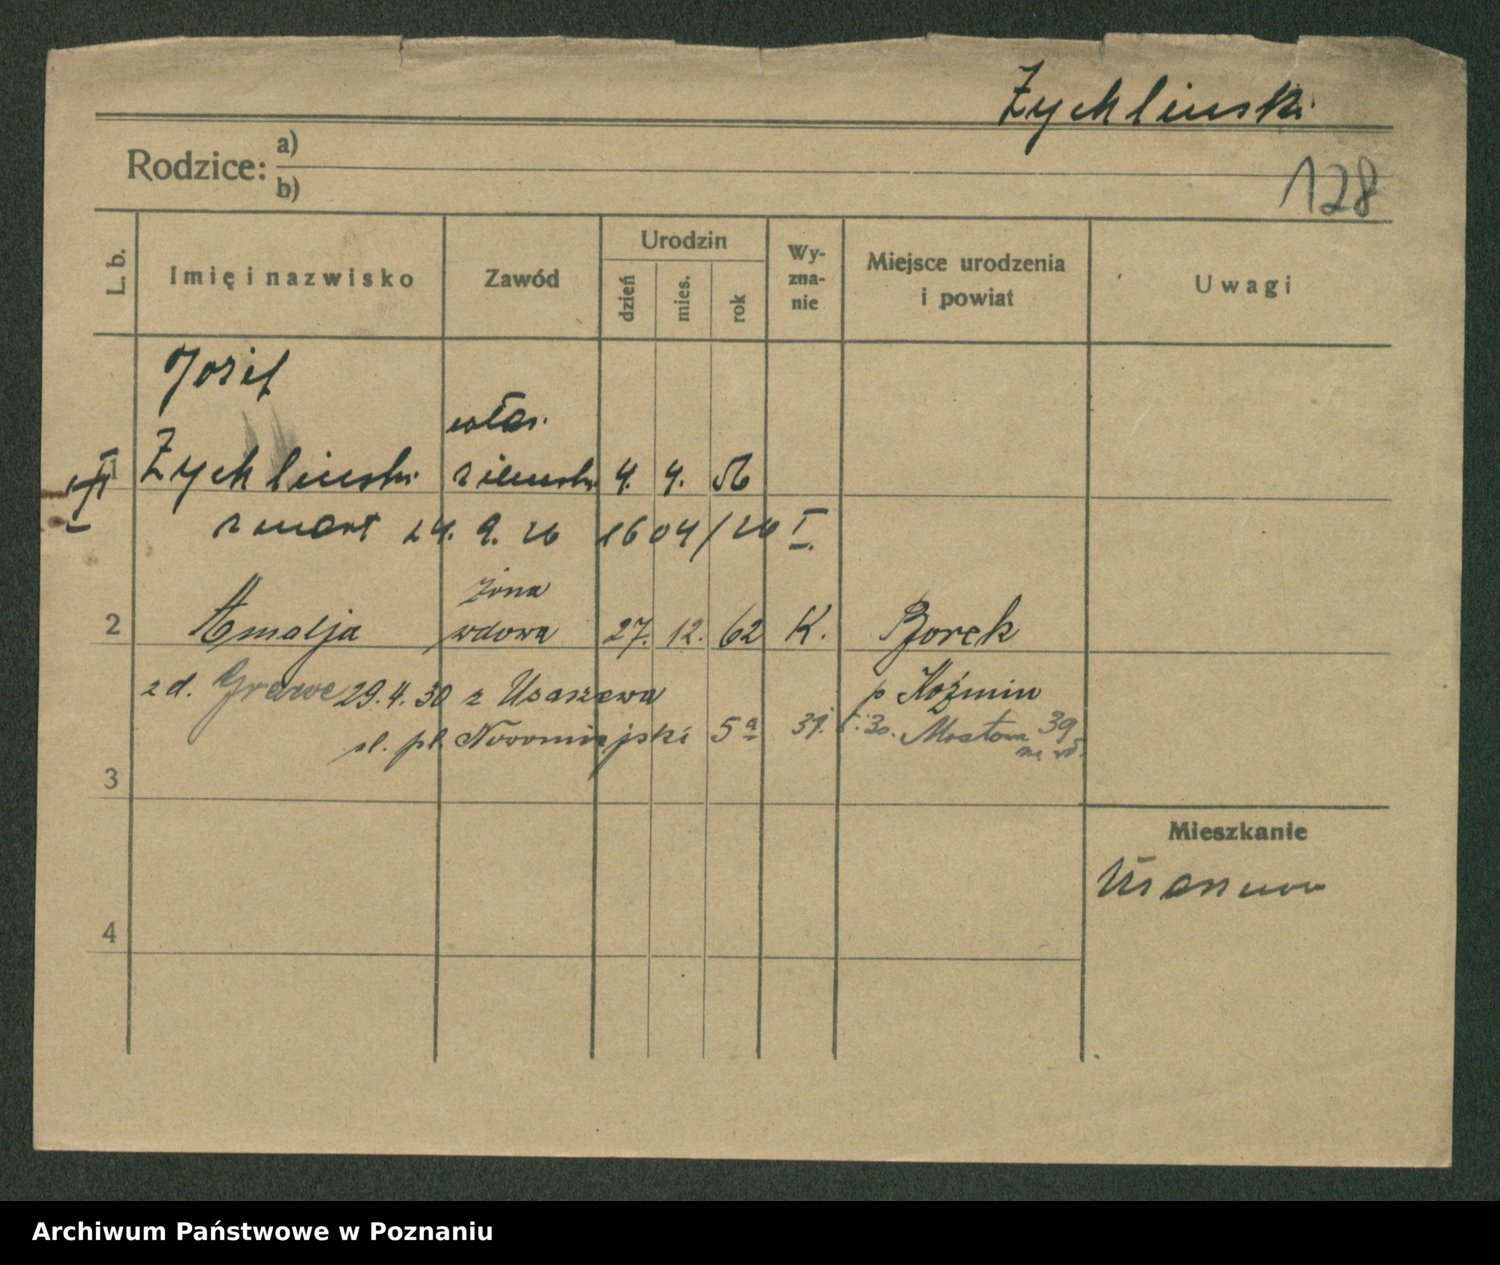 Zychlinski
Rodzice: a)
b)
128
L. b.
Imię i nazwisko
Zawód
Urodzin
dzień
mies.
rok
Wy-
zna-
nie
Miejsce urodzenia
i powiat
Uwagi
Josef
włas.
1 Zychlinski ziemski 4. 4. 56
zmart 24. 9. 26 1604/26 I.
żona
2 Amalja wdowa 27. 12. 62 K. Borek
z d. Grawe 29.4.30 z Usaszewa p Koźmin
pl. Nowomiejski 5a 31. 5. 30. Mostowa 39
3
Mieszkanie
4
Archiwum Państwowe w Poznaniu